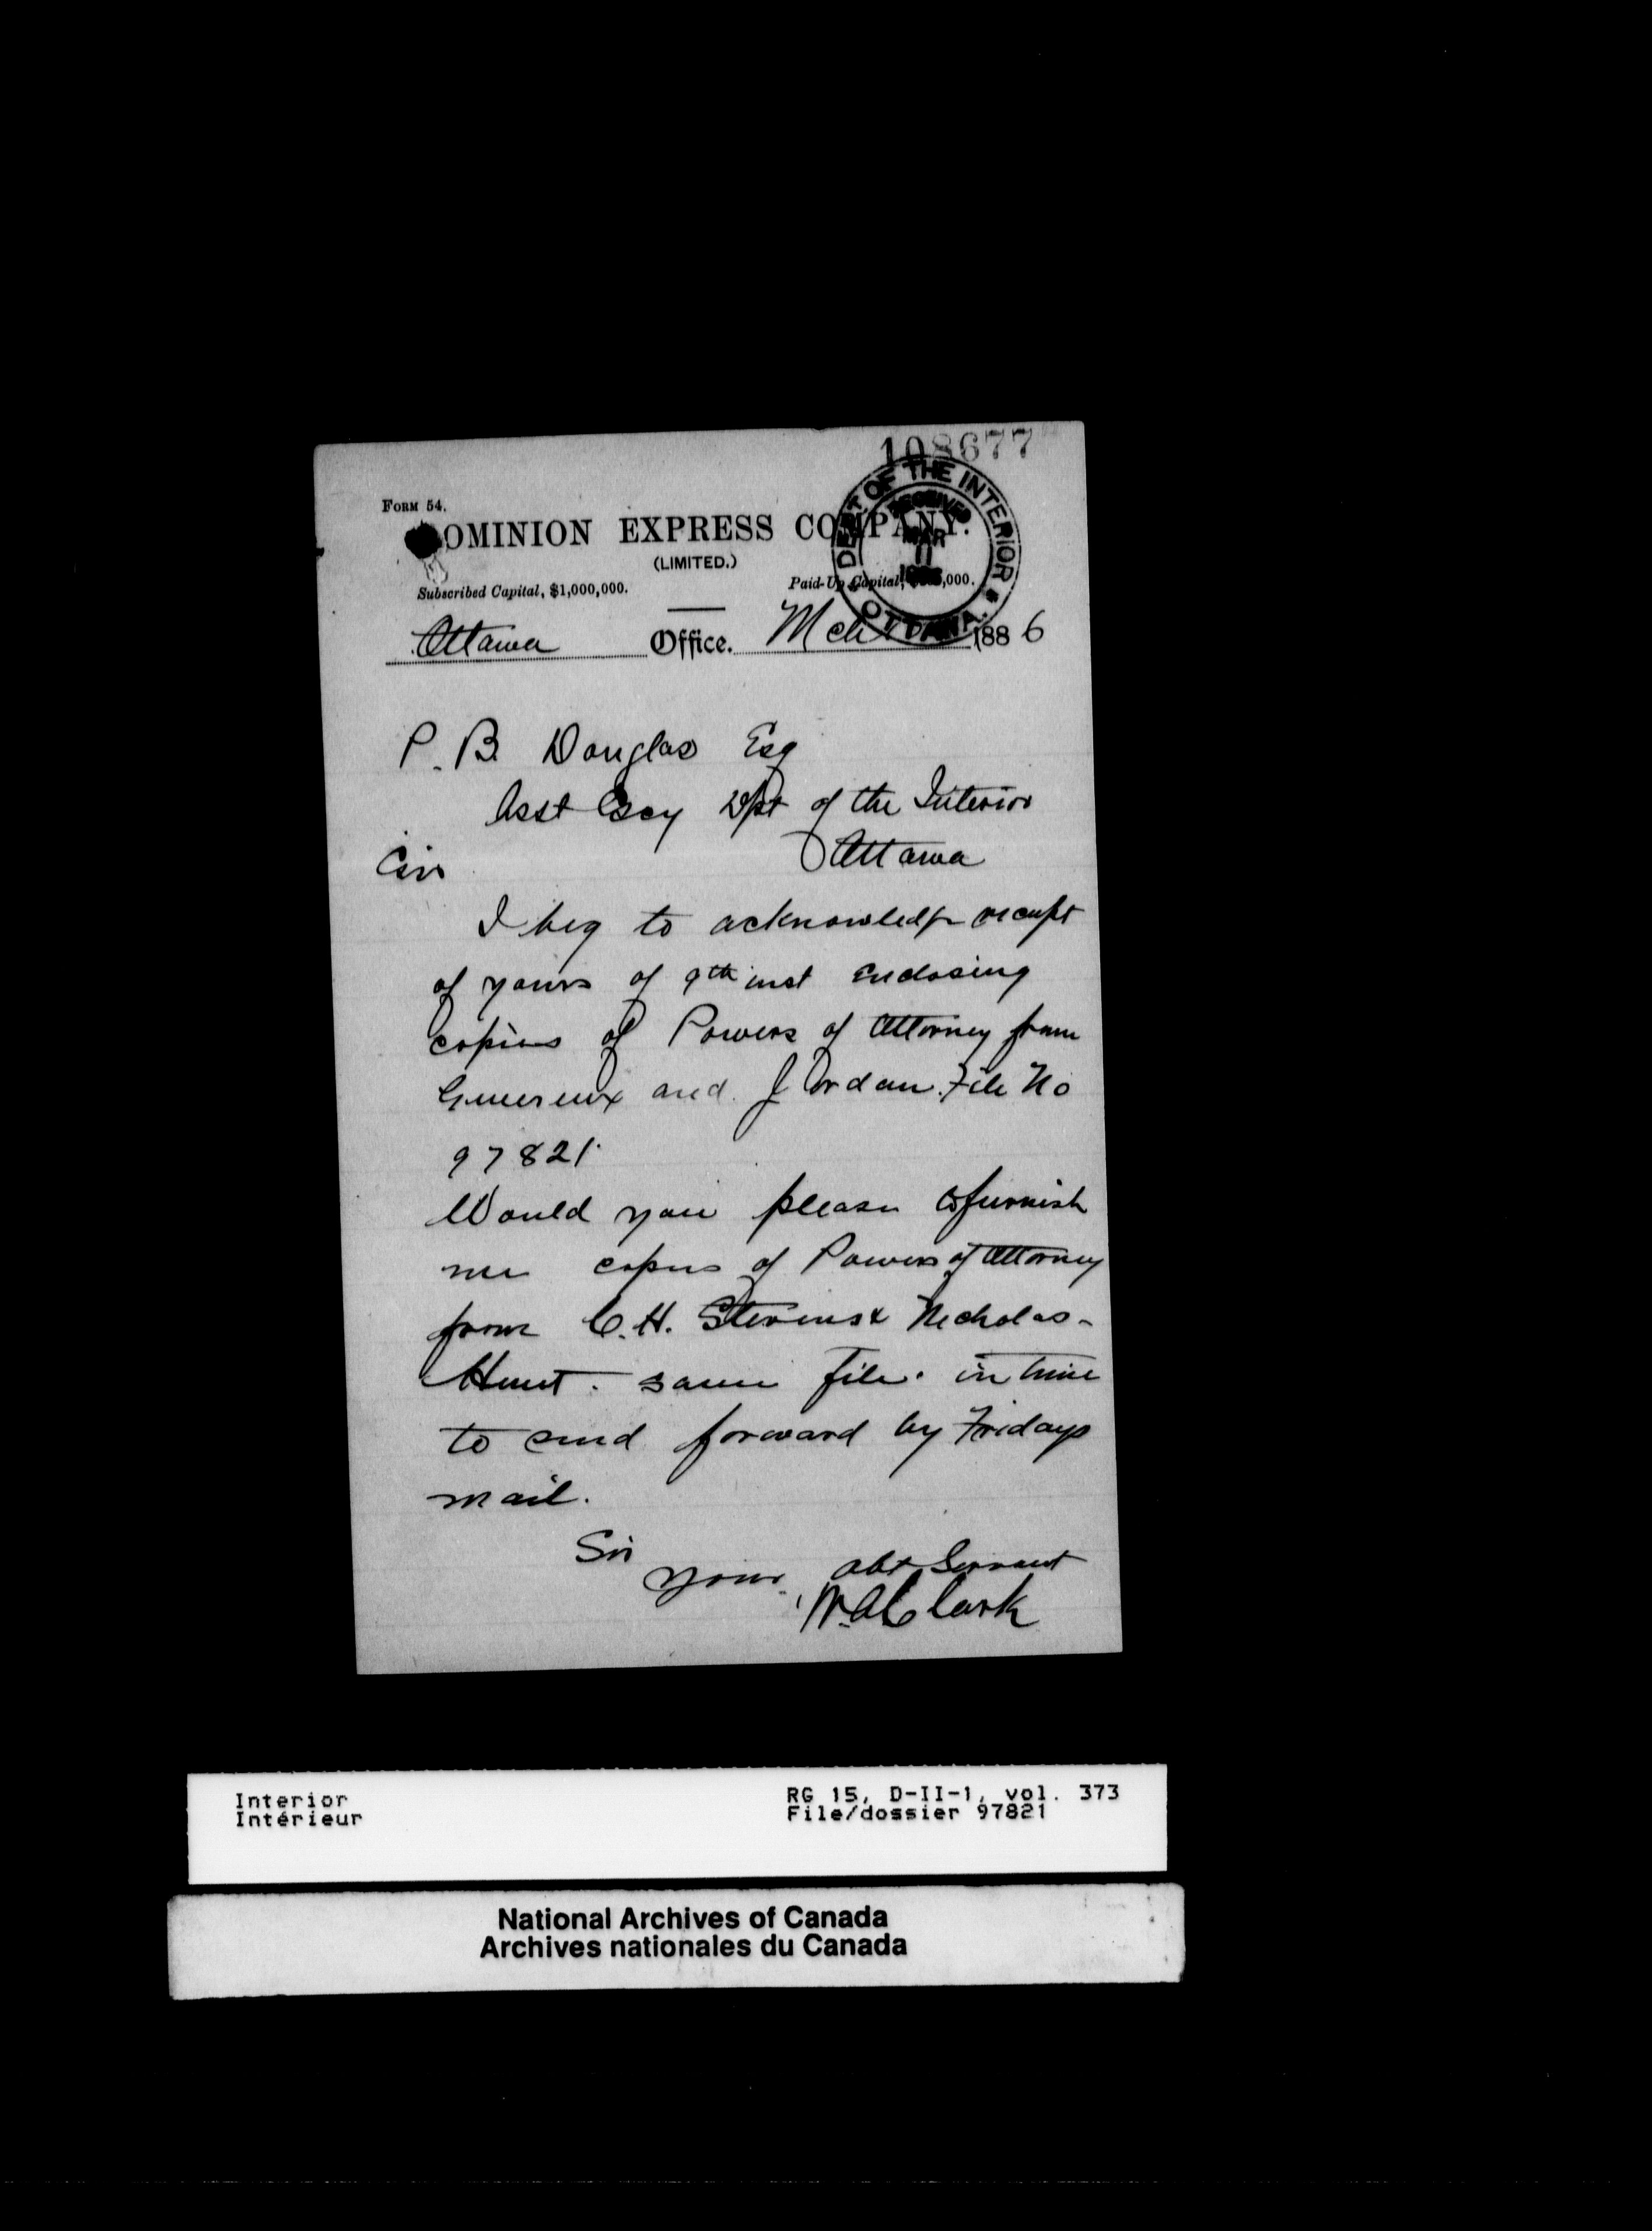 108677
DEPT OF THE INTERIOR
RECEIVED
MAR
11
1886
OTTAWA
FORM 54.
DOMINION EXPRESS COMPANY.
(LIMITED.)
Subscribed Capital, $1,000,000. Paid-Up Capital, ,000.
Ottawa Office. Mch 1886
P. B. Douglas Esq
Asst Secy Dpt of the Interior
Ottawa
Sir
I beg to acknowledge receipt
of yours of 9th inst Enclosing
copies of Powers of Attorney from
Genereux and Jordan. File No
97821.
Would you please furnish
me copies of Powers of Attorney
from C. H. Stevens & Nicholas
. same file. in time
to send forward by Fridays
mail.
Sir
Your obt Servant
W. A. Clark
Interior
Intérieur
RG 15, D-II-1, vol. 373
File/dossier 97821
National Archives of Canada
Archives nationales du Canada